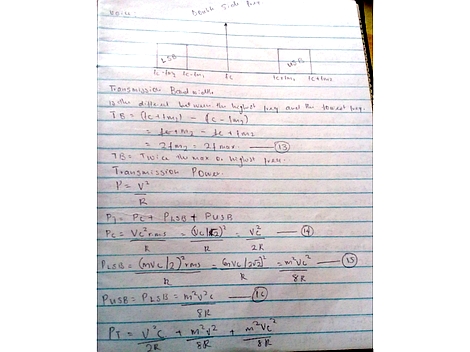 Double Side
LSB USB
fc-fm2 fc-fm1 fc fc+fm1 fc+fm2
Transmission Bandwidth
is the different between the highest freq and the lowest freq.
TB = (fc+fm2) - (fc-fm2)
= fc+fm2 - fc+fm2
= 2fm2 = 2fmax. (13)
TB = Twice the max or highest
Transmission Power
P = V²/R
PT = PC + PLSB + PUSB
PC = Vc²rms/R = (Vc/√2)²/R = Vc²/2R (14)
PLSB = (mVc/2)²rms/R = (mVc/2√2)²/R = m²Vc²/8R (15)
PUSB = PLSB = m²V²c/8R (16)
PT = V²c/2R + m²V²/8R + m²Vc²/8R